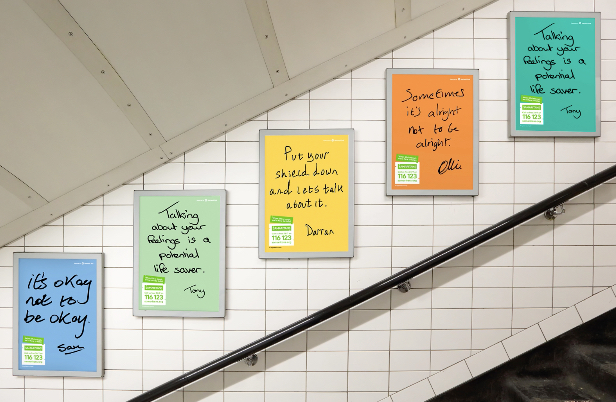 it's okay
not to
be okay.
Sam
116 123
Talking
about your
feelings is a
potential
life saver.
Tony
116 123
Put your
shield down
and let's talk
about it.
Darran
116 123
Sometimes
it's alright
not to be
alright.
Ollie
116 123
Talking
about your
feelings is a
potential
life saver.
Tony
116 123